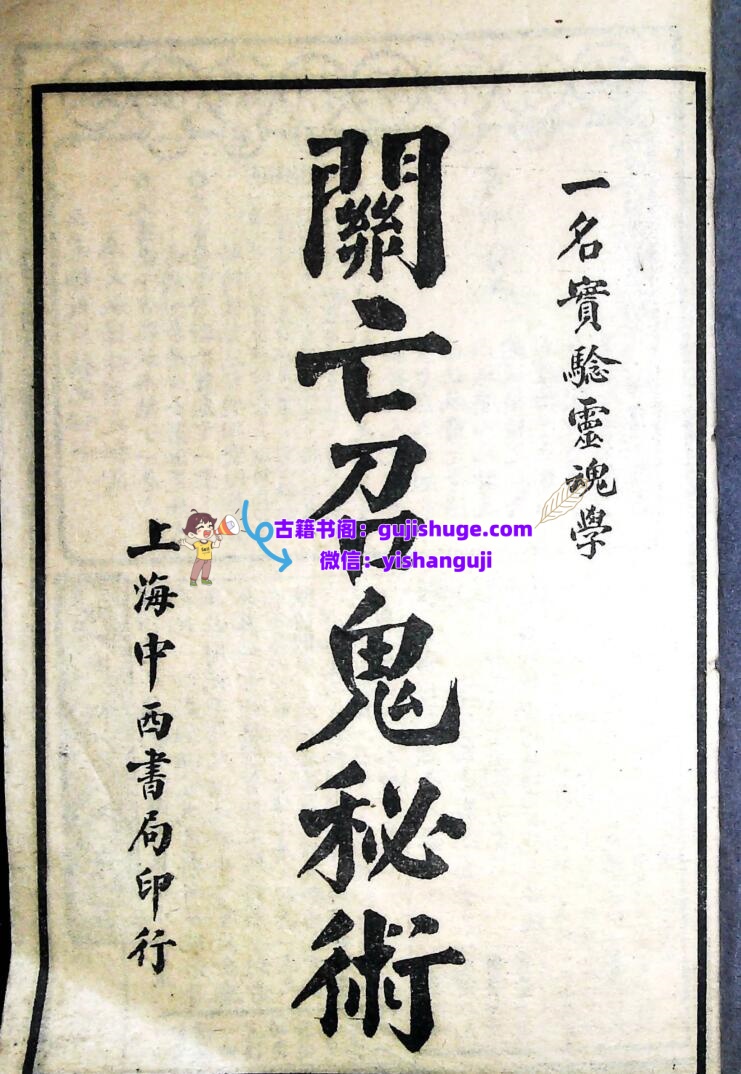 一名實驗靈魂學
關亡召鬼秘術
上海中西書局印行
古籍书阁：gujishuge.com
微信：yishanguji